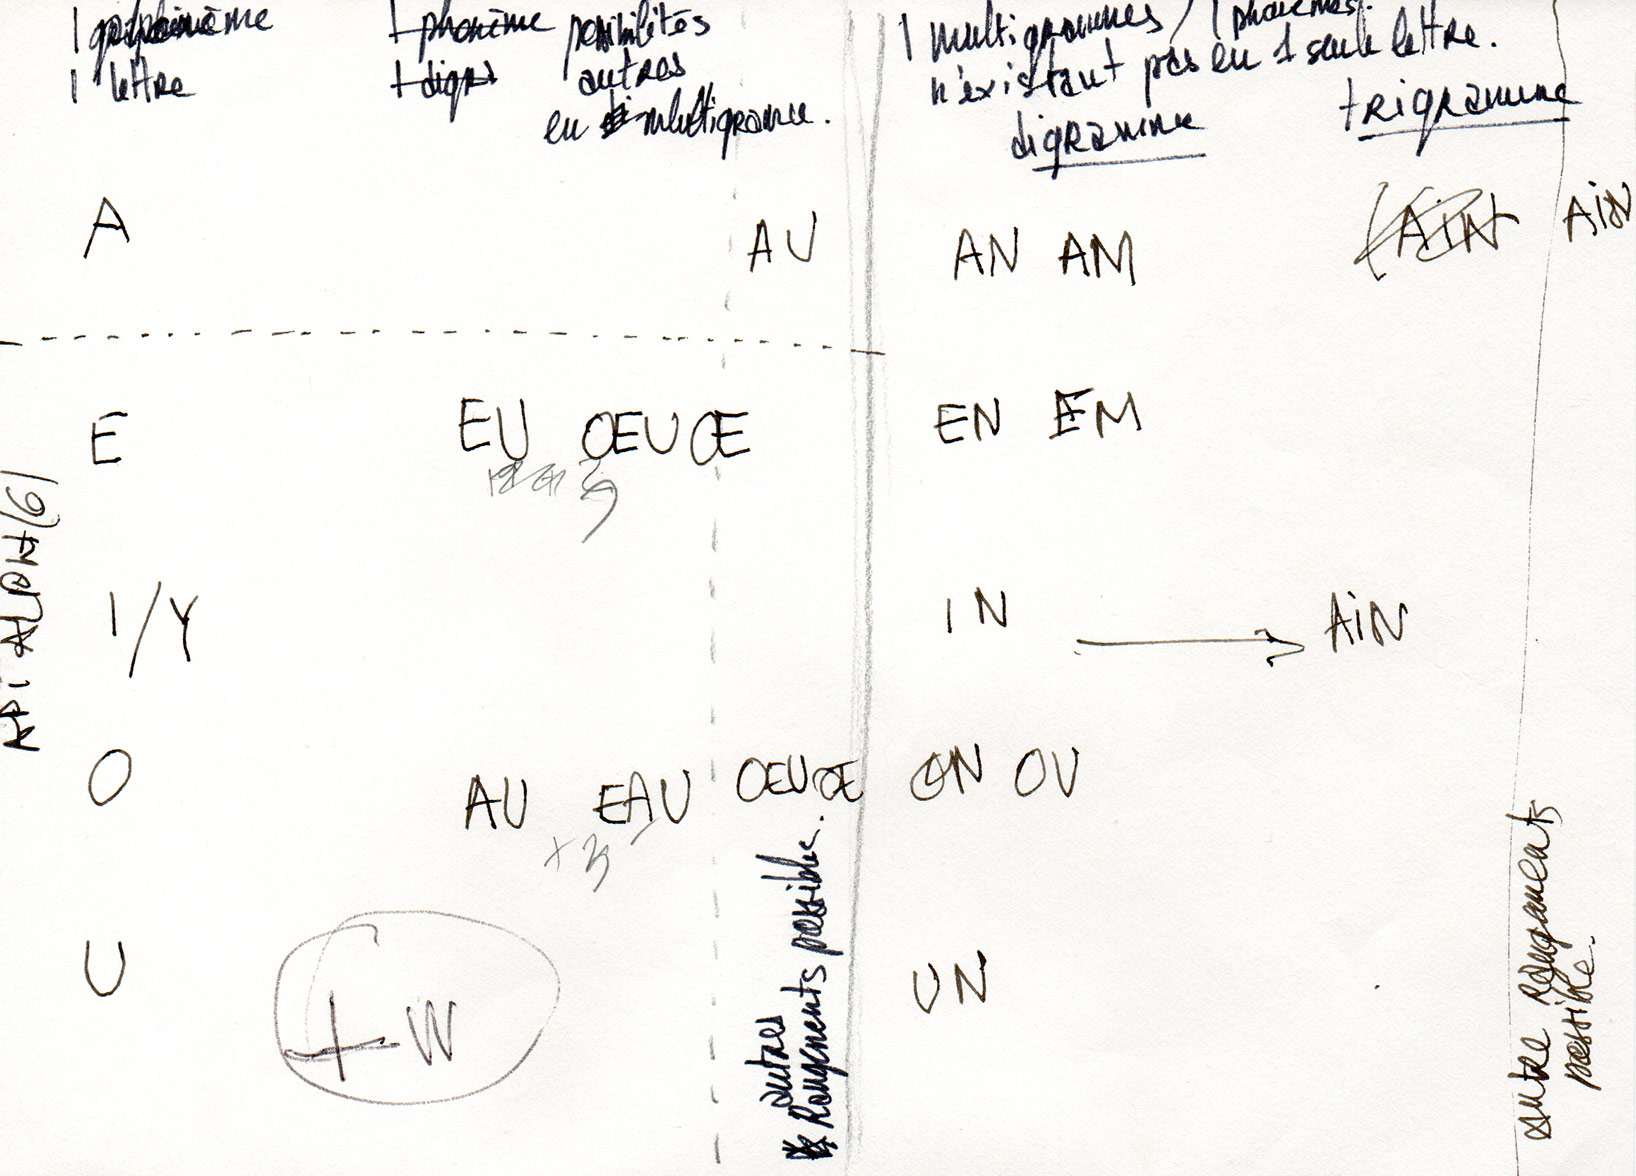 1 phonème
1 lettre
1 phonème possibilités
autres
en multigramme.
1 multigrammes / 1 phonèmes.
n'existant pas en 1 seule lettre.
digramme
trigramme
A
AU
AN AM
AIN
AIN
E
EU OEU OE
EN EM
I/Y
IN
AIN
O
AU EAU OEU OE
ON OU
+3
U
+ W
UN
autres
Rangements possible.
autre Rangements
possible.